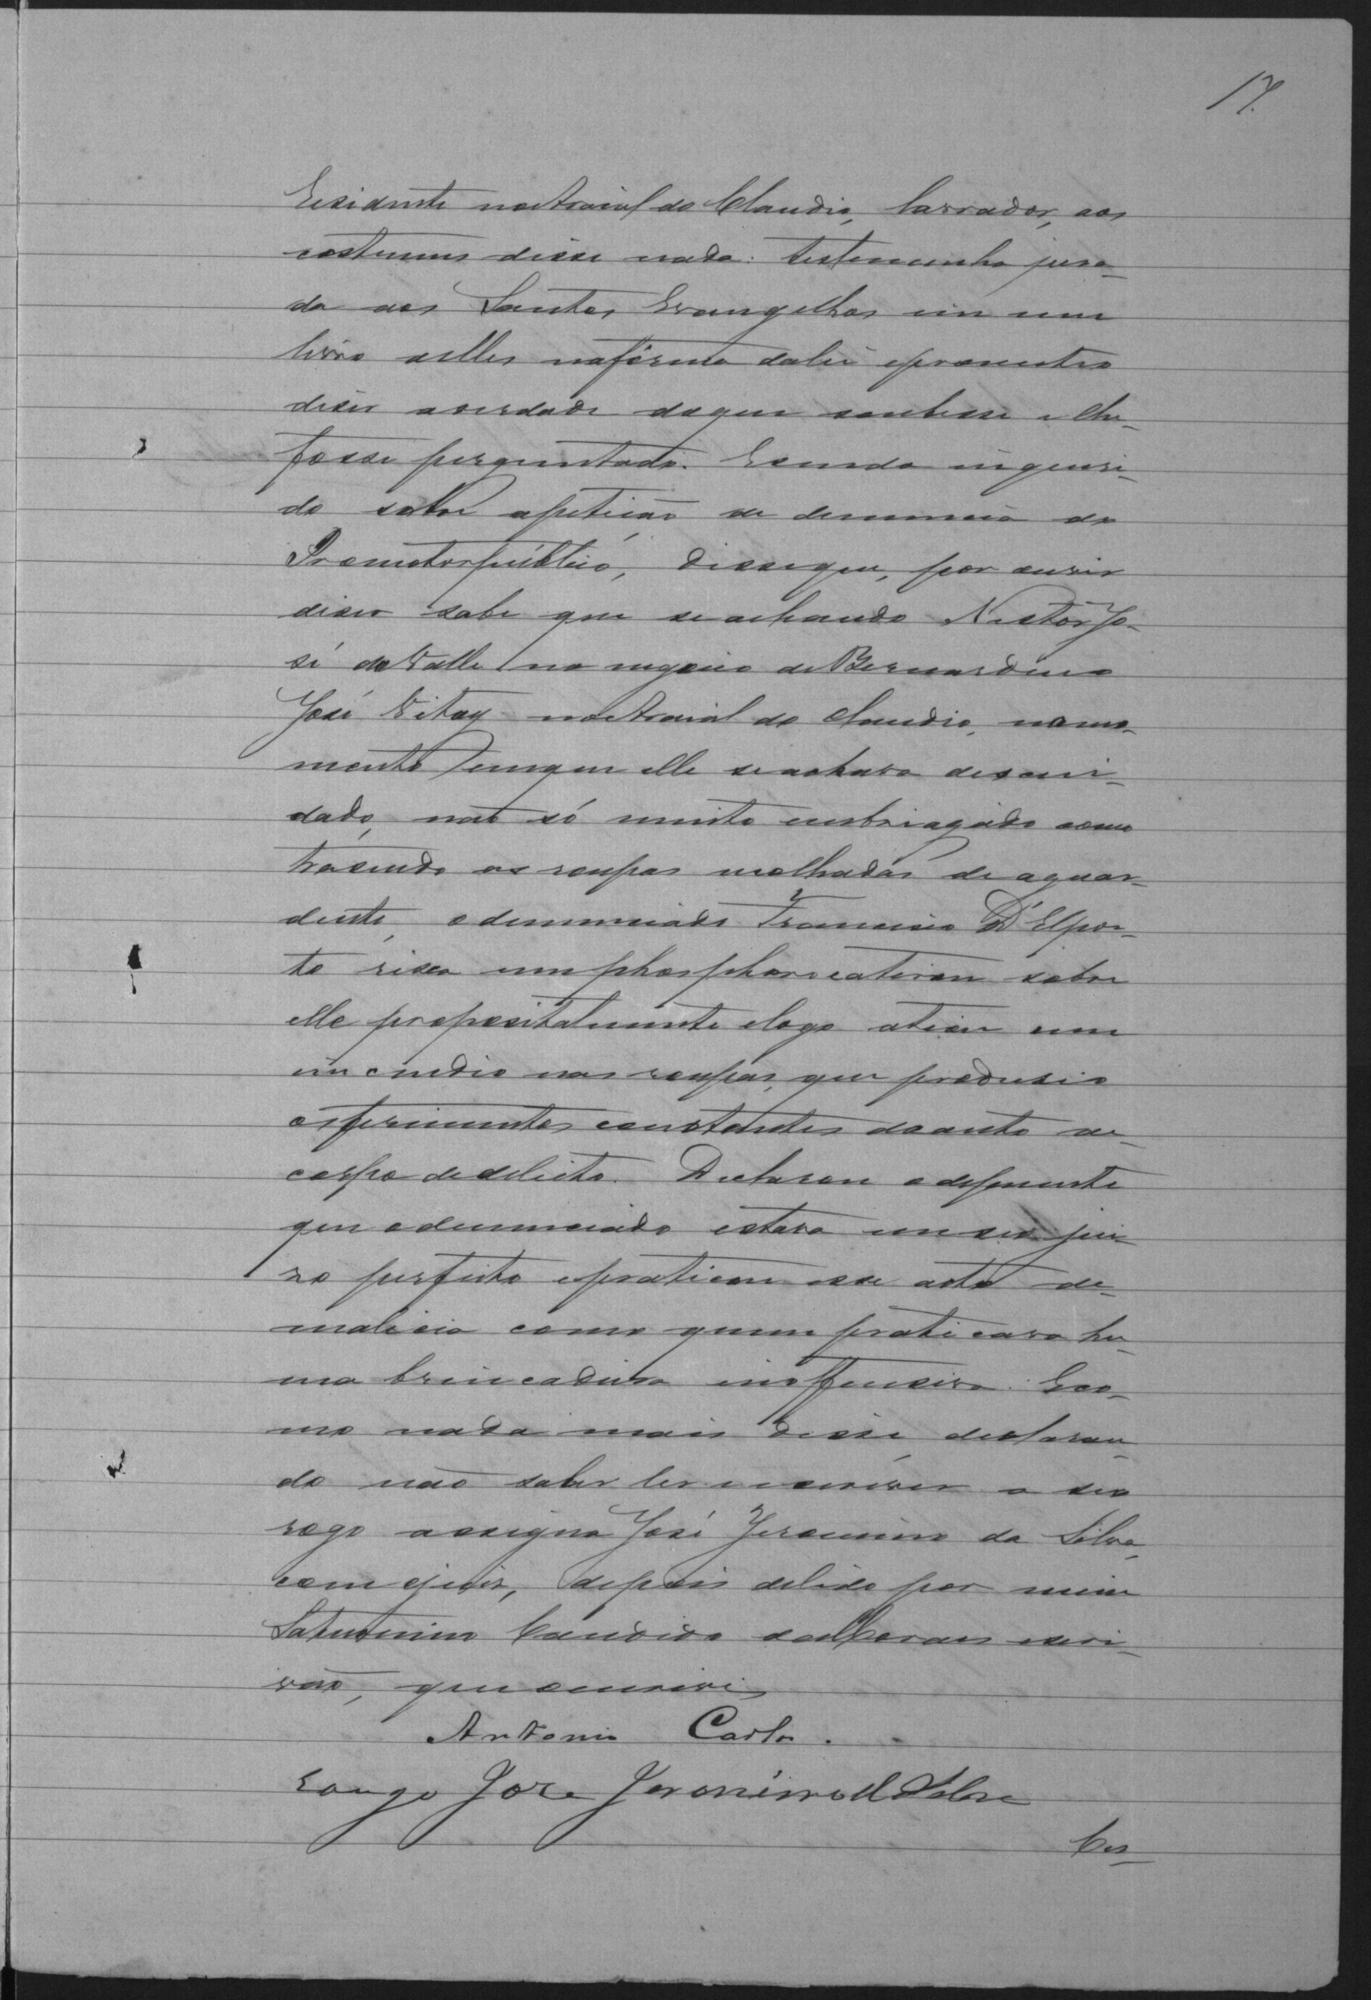 17.
residente no Arraial do Claudio, lavrador, aos
costumes disse nada: testemunha jura-
da aos Santos Evangelhos em um
livro delles na fórma da lei e prometteo
diser a verdade do que soubesse e lhe
fosse perguntado. E sendo inqueri-
do sobre a petição de denuncia do
Promotor público, disse que, por ouvir
diser sabe que se achando Nestor Jo-
sé do Valle no negocio de Bernardino
José Vitag no Arraial do Claudio, no mo-
mento em que elle se achava descui-
dado, não só muito embriagado como
trasendo as roupas molhadas de aguar-
dente, o denunciado Francisco D'Elpor-
to risca um phosphoro e atirou sobre
elle propositalmente e logo ateou um
incendio nas roupas, que produsio
os ferimentos constantes do auto de
corpo de delicto. Declarou o depoente
que o denunciado estava em seo jui-
zo perfeito e praticou esse acto de
malicia como quem praticava hu-
ma brincadeira inoffensiva. E co-
mo nada mais disse, declaran-
do não saber ler e escrever a seo
rogo assigna José Jeronimo da Silva,
com o juiz, depois de lido por mim
Saturnino Candido de Moraes escri-
vão, que o escrevi
Antonio Carlos.
Rougo Jose Jeronimo da Silva
Cer-